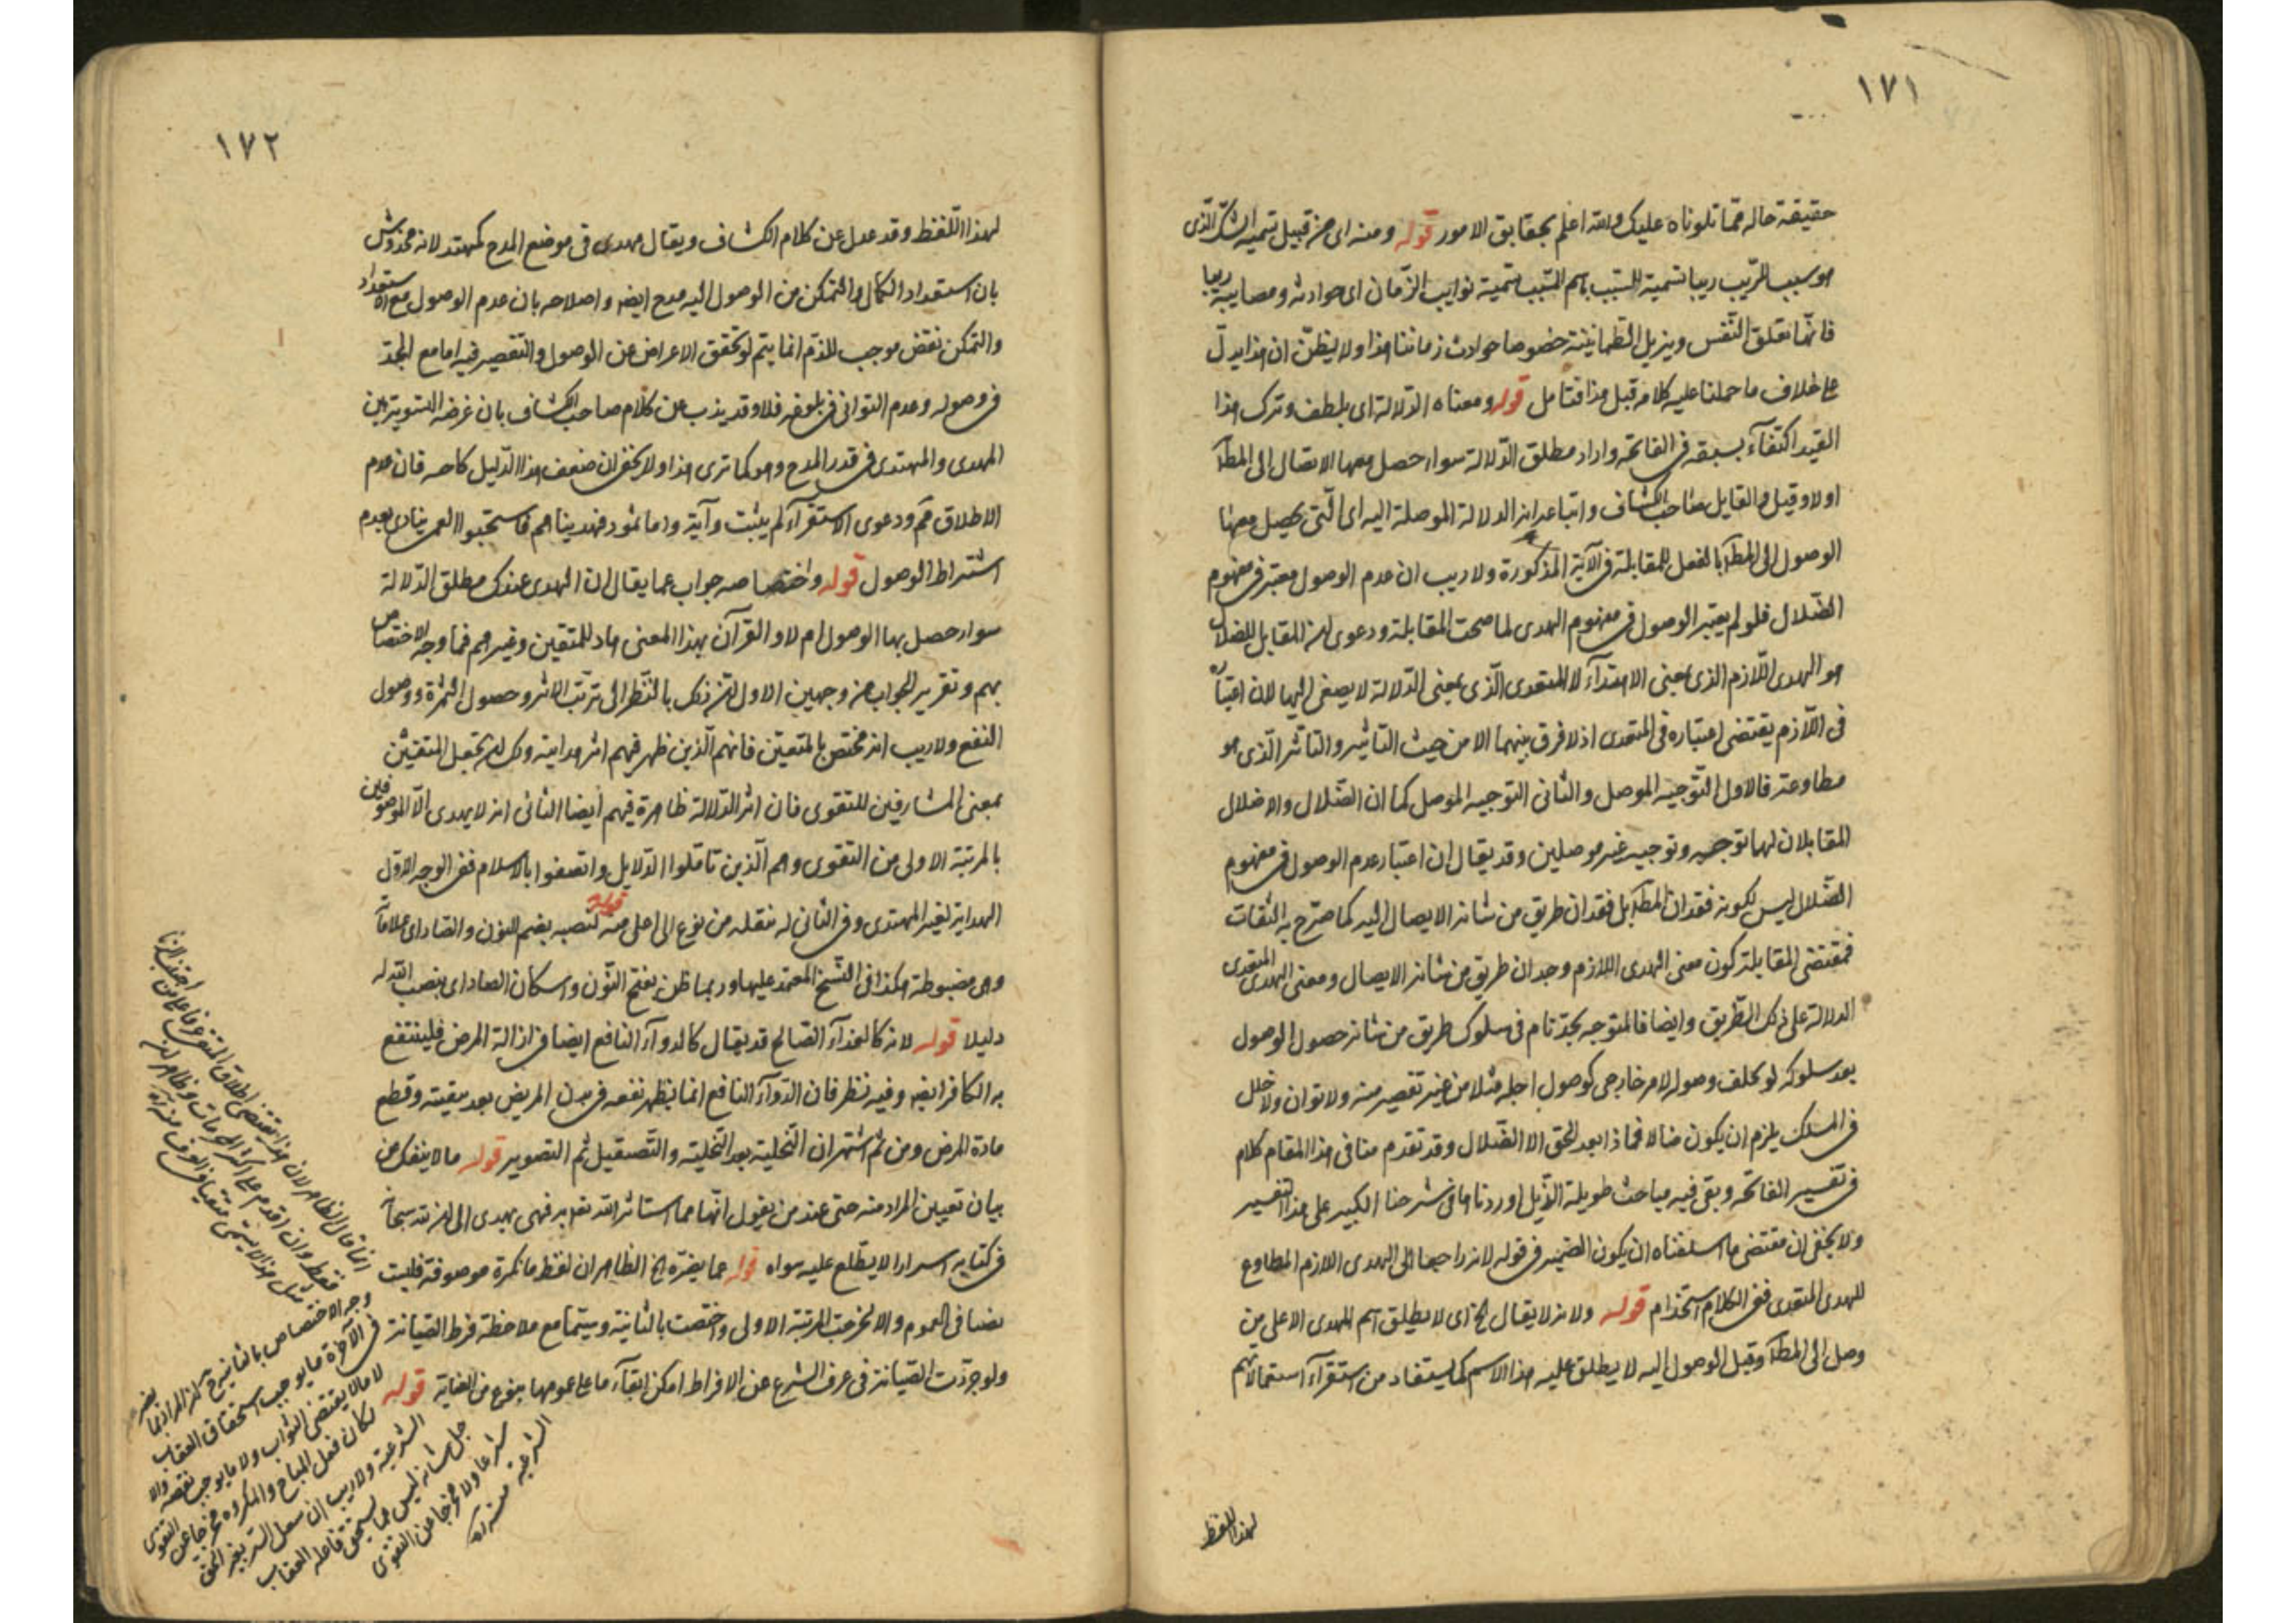 ١٧١
حقيقة حاله مما تلوناه عليك والله اعلم بحقايق الامور قوله ومنه اى من قبيل تسمية الشك الّذى
هو سبب الريب ريبا تسمية للسبب باسم المسبب تسمية نوايب الزّمان اى حوادثه ومصايبه ريبا
فانها تقلق النّفس ويزيل الطمانينة خصوصا حوادث زماننا هذا ولا يظنّ ان هذا يدلّ
على خلاف ما حملنا عليه كلامه قبل هذا فتامل قوله ومعناه الدّلالة اى بلطف وترك هذا
القيد اكتفآء بسبقه فى الفاتحة واراد مطلق الدّلالة سواء حصل معها الايصال الى المط
اولا وقيل والقايل صاحب الكشاف واتباعه انه الدلالة الموصلة اليه اى الّتى يحصل معها
الوصول الى المط بالفعل للمقابلة فى الآية المذكورة ولا ريب ان عدم الوصول معتبر فى مفهوم
الضّلال فلو لم يعتبر الوصول فى مفهوم الهدى لما صحت المقابلة ودعوى ان المقابل للضلال
هو الهدى اللّازم الذى بمعنى الاهتدآء لا المتعدى الّذى بمعنى الدّلالة لا يصغى اليها لان اعتباره
فى اللّازم يقتضى اعتباره فى المتعدى اذ لا فرق بينهما الا من حيث التاثير والتاثر الّذى هو
مطاوعته فالاول التّوجيه الموصل والثانى التوجه الموصل كما ان الضّلال والاضلال
المقابلان لهما توجه وتوجيه غير موصلين وقد يقال ان اعتبار عدم الوصول فى مفهوم
الضّلال ليس لكونه فقدان المط بل فقدان طريق من شانه الايصال اليه كما صرّح به الثقات
فمقتضى المقابلة كون معنى الهدى اللازم وجدان طريق من شانه الايصال ومعنى الهدى المتعدى
الدلالة على ذلك الطّريق وايضا فالمتوجه بجدّ تام فى سلوك طريق من شانه حصول الوصول
بعد سلوكه لو تخلف وصوله لامر خارجى كوصول اجله مثلا من غير تقصير منه ولا توان ولا خلل
فى المسلك يلزم ان يكون ضالا فماذا بعد الحق الا الضّلال وقد تقدم منا فى هذا المقام كلام
فى تفسير الفاتحة وبقى فيه مباحث طويلة الذّيل اوردناها فى شرحنا الكبير على هذا التفسير
ولا يخفى ان مقتضى ما اسلفناه ان يكون الضمير فى قوله لانه راجعا الى الهدى اللازم المطاوع
للهدى المتعدى ففى الكلام استخدام قوله ولانه لا يقال الخ اى لا يطلق اسم المهدى الا على من
وصل الى المط وقبل الوصول اليه لا يطلق عليه هذا الاسم كما يستفاد من استقرآء استعمالاتهم
لهذا اللفظ
١٧٢
لهذا اللّفظ وقد عدل عن كلام الكشاف ويقال مهدى فى موضع المدح كمهتد لانه مخدوش
بان استعداد الكمال والتمكن من الوصول اليه مدح ايضا واصلاحه بان عدم الوصول مع الاستعداد
والتمكن نقض موجب للذم انما يتم لو تحقق الاعراض عن الوصول والتقصير فيه اما مع الجدّ
فى وصوله وعدم التوانى فى بلوغه فلا وقد يذب عن كلام صاحب الكشاف بان غرضه التسوية بين
المهدى والمهتدى فى قدر المدح وهو كما ترى هذا ولا يخفى ان ضعف هذا الدّليل كاحسه فان عدم
الاطلاق مم ودعوى الاستقرآء لم يثبت وآية واما ثمود فهديناهم فاستحبوا العمى ينادى بعدم
اشتراط الوصول قوله واختصاصه جواب عما يقال ان الهدى عندك مطلق الدّلالة
سواء حصل بها الوصول ام لا والقرآن بهذا المعنى هاد للمتقين وغيرهم فما وجه الاختصاص
بهم وتقرير الجواب من وجهين الاول ان ذلك بالنّظر الى ترتب الاثر وحصول الثمرة ووصول
النفع ولا ريب انه مختص بالمتقين فانهم الّذين ظهر فيهم اثر هدايته ولك ان تجعل المتقين
بمعنى المشارفين للتقوى فان اثر الدّلالة ظاهرة فيهم أيضا الثانى انه لا يهدى الّا الموصوفين
بالمرتبة الاولى من التقوى وهم الّذين تاملوا الدّلايل واتصفوا بالاسلام ففى الوجه الاوّل
الهداية لغير المهتدى وفى الثانى له نقله من نوع الى اعلى منه قوله لنصبه بضم النون والصاد اى علاماته
وهى مضبوطة هكذا فى النّسخ المعتمد عليها وربما ظن بفتح النّون واسكان الصاد اى بنصب اللّه له
دليلا قوله لانه كالغذآء الصّالح قد يقال كالدوآء النافع ايضا فى ازالة المرض فلينتفع
به الكافر ايضا وفيه نظر فان الدّوآء النافع انما يظهر نفعه فى بدن المريض بعد تنقيته وقطع
مادة المرض ومن ثم اشتهر ان التّحلية بعد التخلية والتّصقيل ثم التصوير قوله ما لا ينفك عن
بيان تعيين المراد منه حتى عند من يقول انّها مما استاثر اللّه تعالى به فهى يهدى الى ان للّه سبحانه
فى كتابه اسرارا لا يطّلع عليه سواه قوله عما يضرّه الخ الظاهر ان لفظ ما نكرة موصوفة فليست
نصا فى العموم والا لخرجت المرتبة الاولى واختصت بالثانية وسيتما مع ملاحظة فرط الصّيانة
ولو جردت الصّيانة فى عرف الشرع عن الافراط امكن ابقآء ما على عمومها بنوع من العناية قوله
انما قال الظاهر لان
وجه الاختصاص بالثانية ان المراد بما يضر
فى الآخرة ما يوجب استحقاق العقاب
لا ما لا يقتضى الثواب ولا ما يوجب نقصه والا
لكان فعل المباح والمكروه مخرجا عن التقوى
الشرعية ولا ريب ان
جل شانه ليس مما يستحق فاعله العقاب
شرعا ولا مخرجا عن التقوى
الشرعية منه